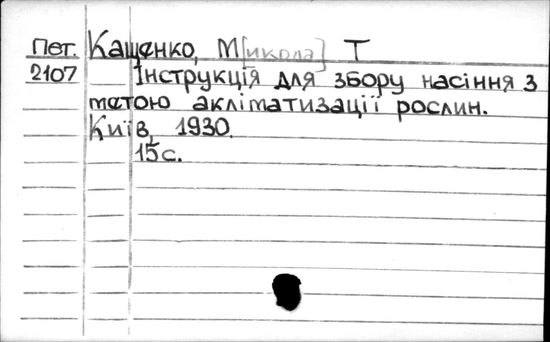 Пет. Кащенко, М[икола] Т
2107 Інструкція для збору насіння з
метою акліматизації рослин.
Київ, 1930.
15 с.